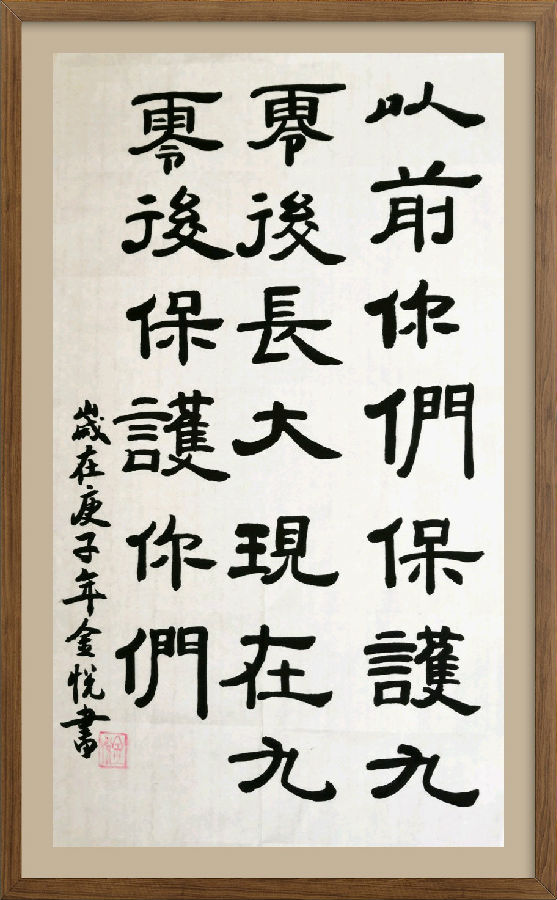 以前你們保護九
零後長大現在九
零後保護你們
歲在庚子年金悅書